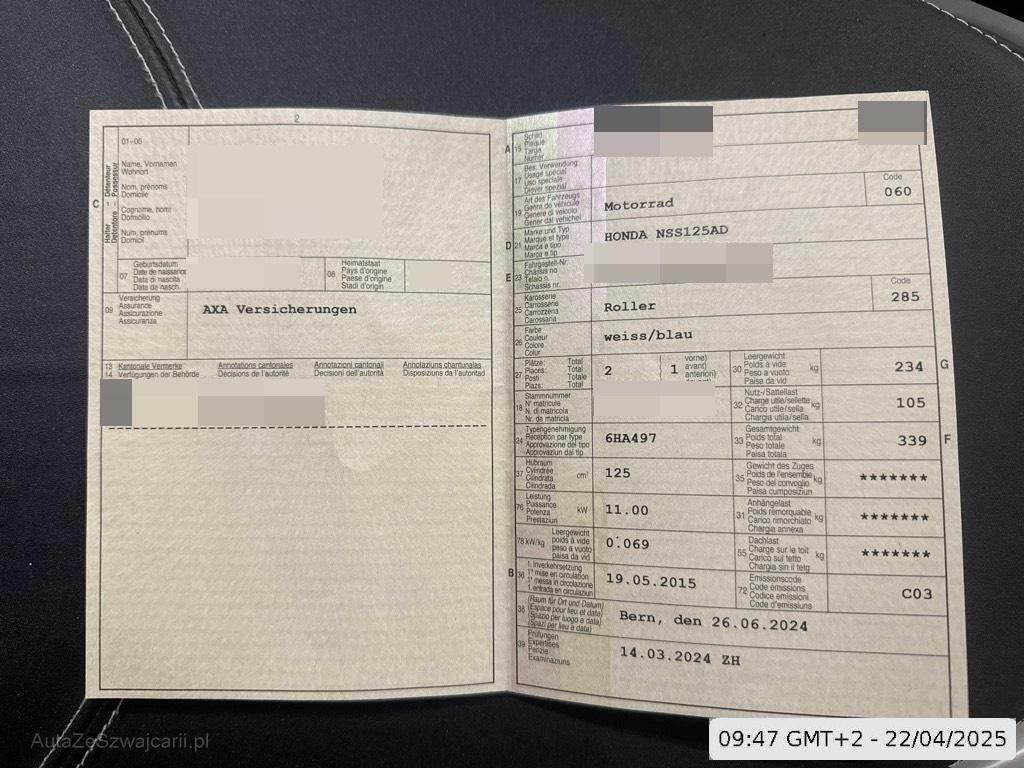 2
01–06
C
Halter
Detentore
Détenteur
Possessur
Name, Vornamen
Wohnort
Nom, prénoms
Domicile
Cognome, nomi
Domicilio
Num, prenums
Domicil
07
Geburtsdatum
Date de naissance
Data di nascita
Data da nasch.
08
Heimatstaat
Pays d'origine
Paese d'origine
Stadi d'origin
09
Versicherung
Assurance
Assicurazione
Assicuranza
AXA Versicherungen
13 Kantonale Vermerke Annotations cantonales Annotazioni cantonali Annotaziuns chantunalas
14 Verfügungen der Behörde Décisions de l'autorité Decisioni dell'autorità Disposiziuns da l'autoritad
A 15
Schild
Plaque
Targa
Numer
17
Bes. Verwendung
Usage spécial
Uso speciale
Diever spezial
19
Art des Fahrzeugs
Genre de véhicule
Genere di veicolo
Gener dal vehichel
Motorrad
Code
060
D 21
Marke und Typ
Marque et type
Marca e tipo
Marca e tip
HONDA NSS125AD
E 23
Fahrgestell-Nr.
Châssis no
Telaio n.
Schassis nr.
25
Karosserie
Carrosserie
Carrozzeria
Carossaria
Roller
Code
285
26
Farbe
Couleur
Colore
Colur
weiss/blau
27
Plätze: Total
Places: Total
Posti: Totale
Plazs: Total
2
1
vorne)
avant)
anteriori)
30
Leergewicht
Poids à vide
Peso a vuoto
Paisa da vid
kg
234
G
18
Stammnummer
N° matricule
N. di matricola
Nr. da matricla
32
Nutz-/Sattellast
Charge utile/sellette
Carico utile/sella
Chargia utila/sella
kg
105
24
Typengenehmigung
Réception par type
Approvazione del tipo
Approvaziun dal tip
6HA497
33
Gesamtgewicht
Poids total
Peso totale
Paisa totala
kg
339
F
37
Hubraum
Cylindrée
Cilindrata
Cilindrada
cm³
125
35
Gewicht des Zuges
Poids de l'ensemble
Peso del convoglio
Paisa cumposiziun
kg
*******
76
Leistung
Puissance
Potenza
Prestaziun
kW
11.00
31
Anhängelast
Poids remorquable
Carico rimorchiato
Chargia annexa
kg
*******
78 kW/kg
Leergewicht
poids à vide
peso a vuoto
paisa da vid
0.069
55
Dachlast
Charge sur le toit
Carico sul tetto
Chargia sin il tetg
kg
*******
B 36
1. Inverkehrsetzung
1re mise en circulation
1a messa in circolazione
1. entrada en circulaziun
19.05.2015
72
Emissionscode
Code émissions
Codice emissioni
Code d'emissiuns
C03
38
(Raum für Ort und Datum)
(Espace pour lieu et date)
(Spazio per luogo e data)
(Spazi per lieu e data)
Bern, den 26.06.2024
39
Prüfungen
Expertises
Perizie
Examinaziuns
14.03.2024 ZH
AutaZeSzwajcarii.pl
09:47 GMT+2 - 22/04/2025